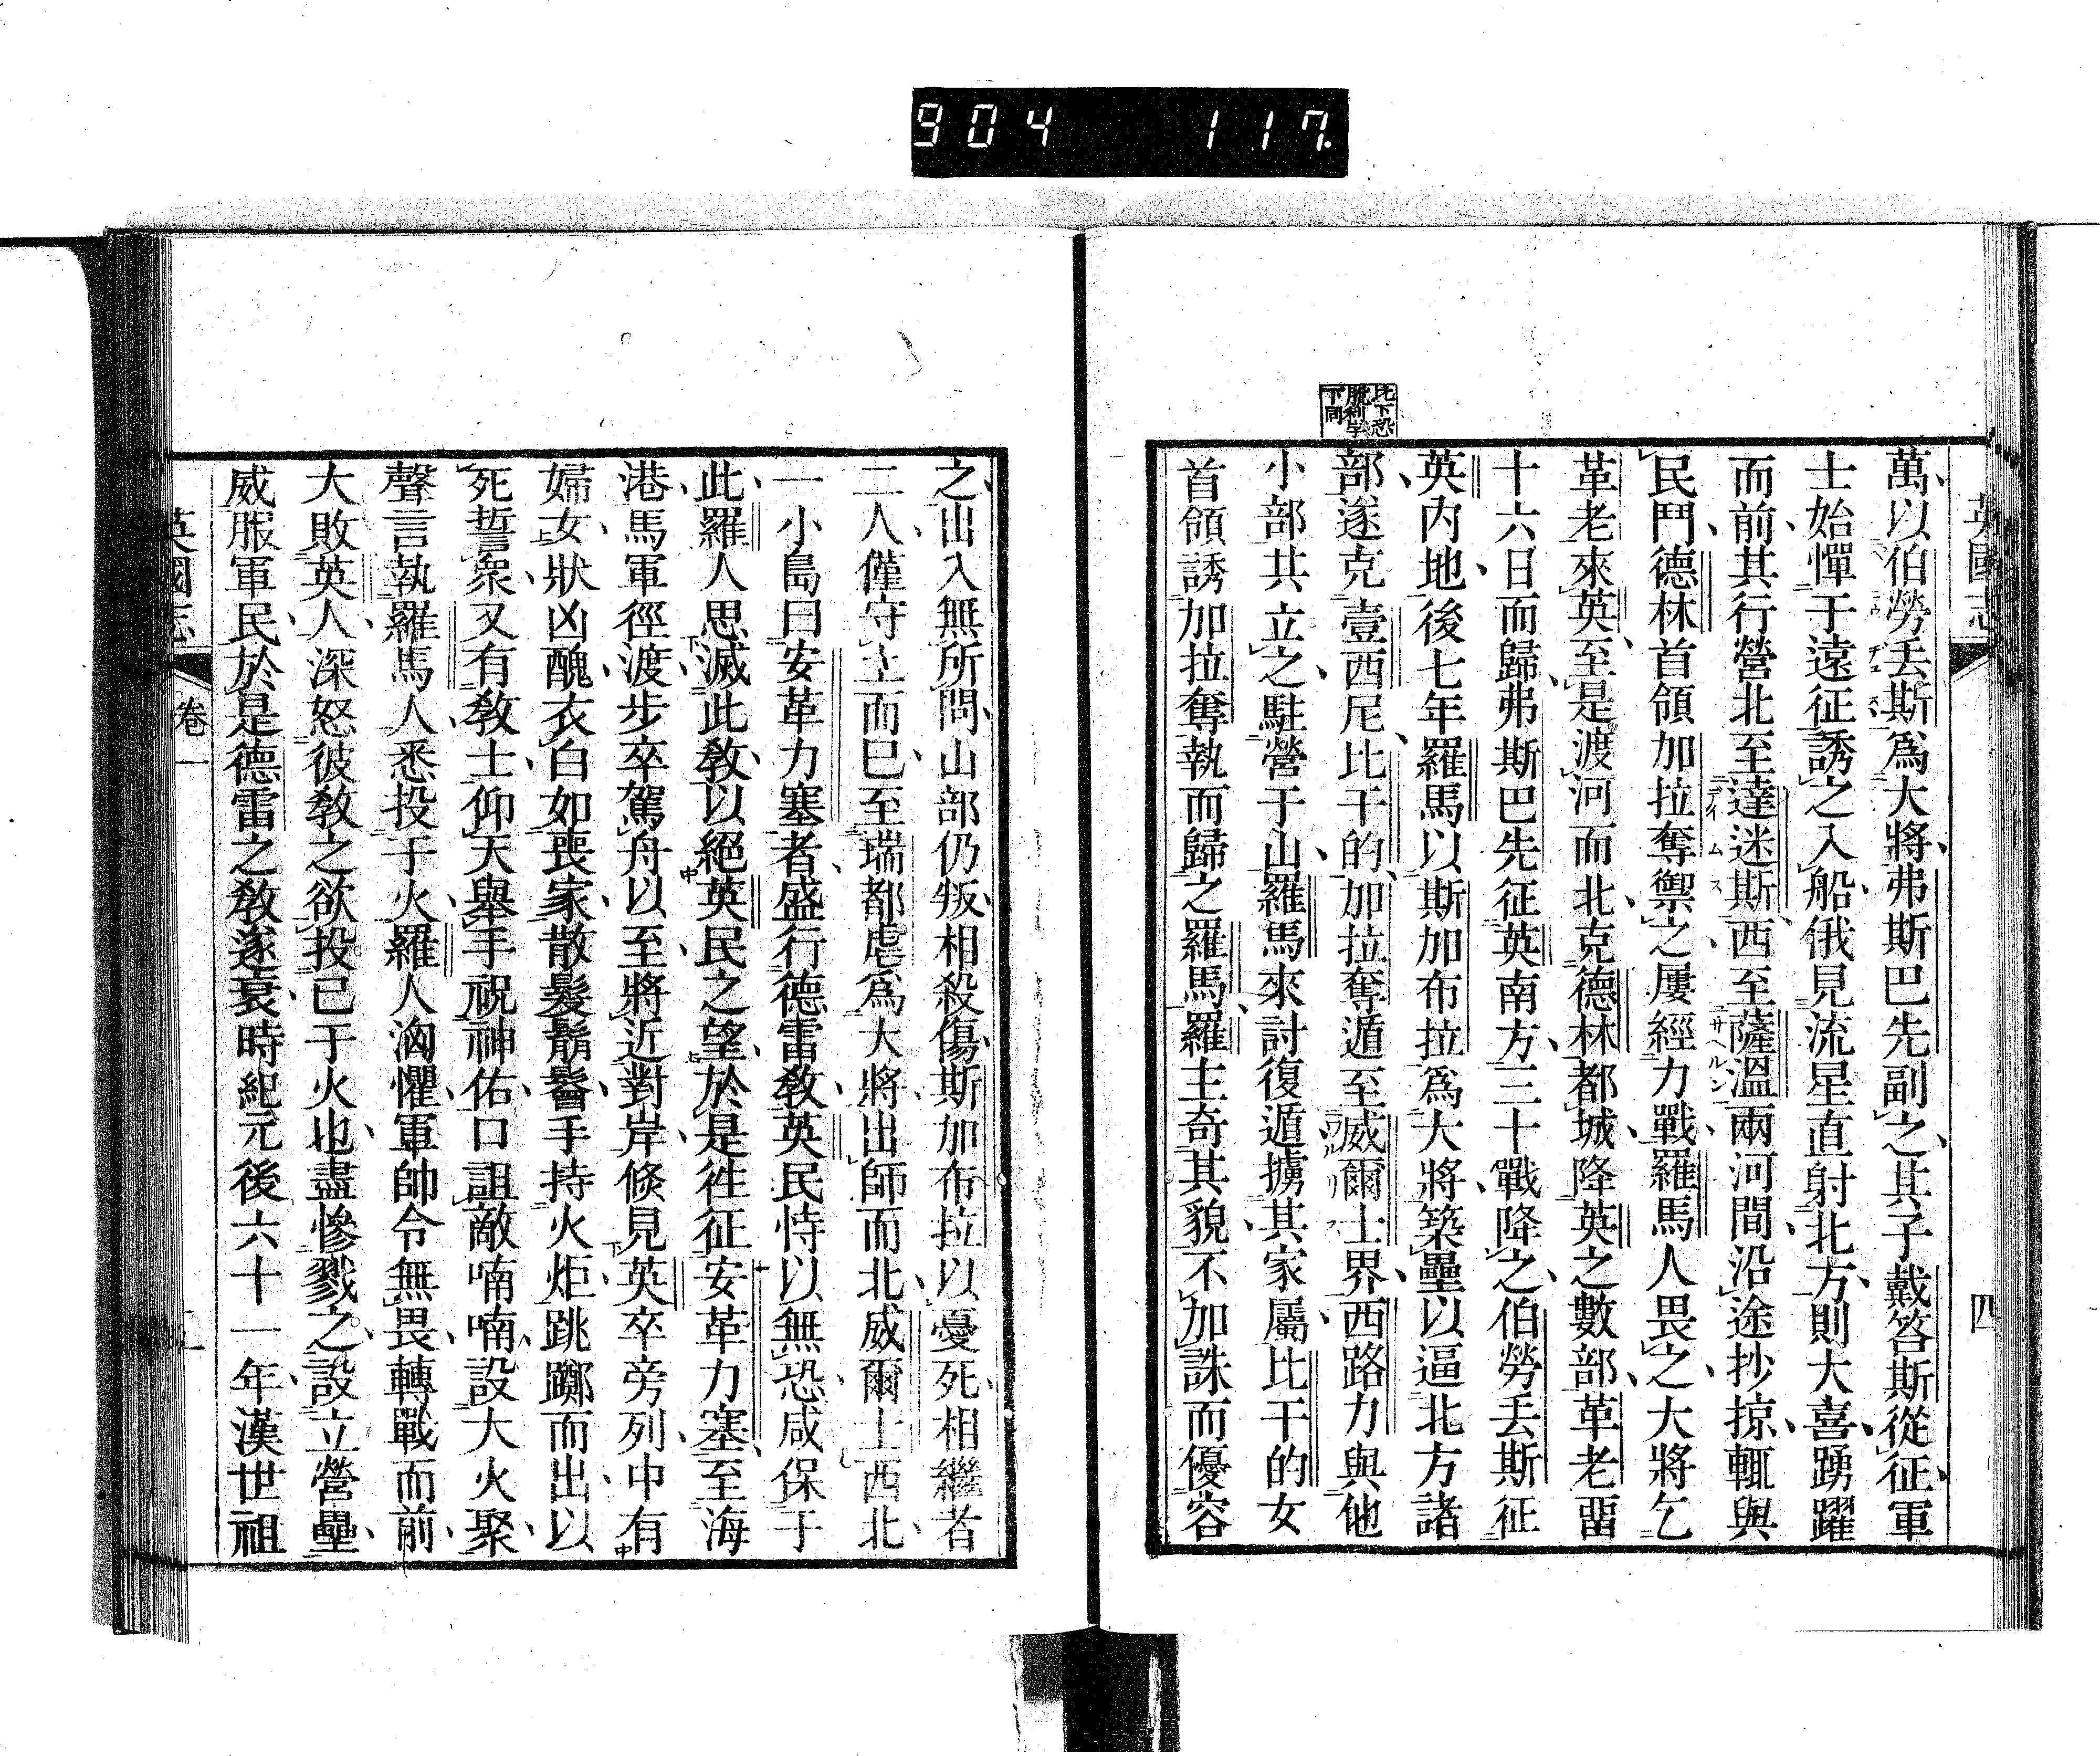 904 117
英國志
四
萬以伯勞丟斯爲大將弗斯巴先副之其子戴笞斯從征軍
士始憚于遠征誘之入船俄見流星直射北方則大喜踴躍
而前其行營北至達迷斯西至薩溫兩河間沿途抄掠輒與
民鬥德林首領加拉奪禦之屢經力戰羅馬人畏之大將乞
革老來英至是渡河而北克德林都城降英之數部革老畱
十六日而歸弗斯巴先征英南方三十戰降之伯勞丟斯征
英内地後七年羅馬以斯加布拉爲大將築壘以逼北方諸
比下恐
脫利字
下同
部遂克壹西尼比干的加拉奪遁至威爾士界西路力與他
小部共立之駐營于山羅馬來討復遁擄其家屬比干的女
首領誘加拉奪執而歸之羅馬羅主奇其貌不加誅而優容
之出入無所問山部仍叛相殺傷斯加布拉以憂死相繼者
二人僅守土而已至瑞都虐爲大將出師而北威爾士西北
一小島曰安革力塞者盛行德雷敎英民恃以無恐咸保于
此羅人思滅此敎以絕英民之望於是徃征安革力塞至海
港馬軍徑渡步卒駕舟以至將近對岸倐見英卒旁列中有
婦女狀凶醜衣白如喪家散髮鬅鬙手持火炬跳躑而出以
死誓衆又有敎士仰天舉手祝神佑口詛敵喃喃設大火聚
聲言執羅馬人悉投于火羅人洶懼軍帥令無畏轉戰而前
大敗英人深怒彼敎之欲投已于火也盡慘戮之設立營壘
威服軍民於是德雷之敎遂衰時紀元後六十一年漢世祖
英國志
卷一